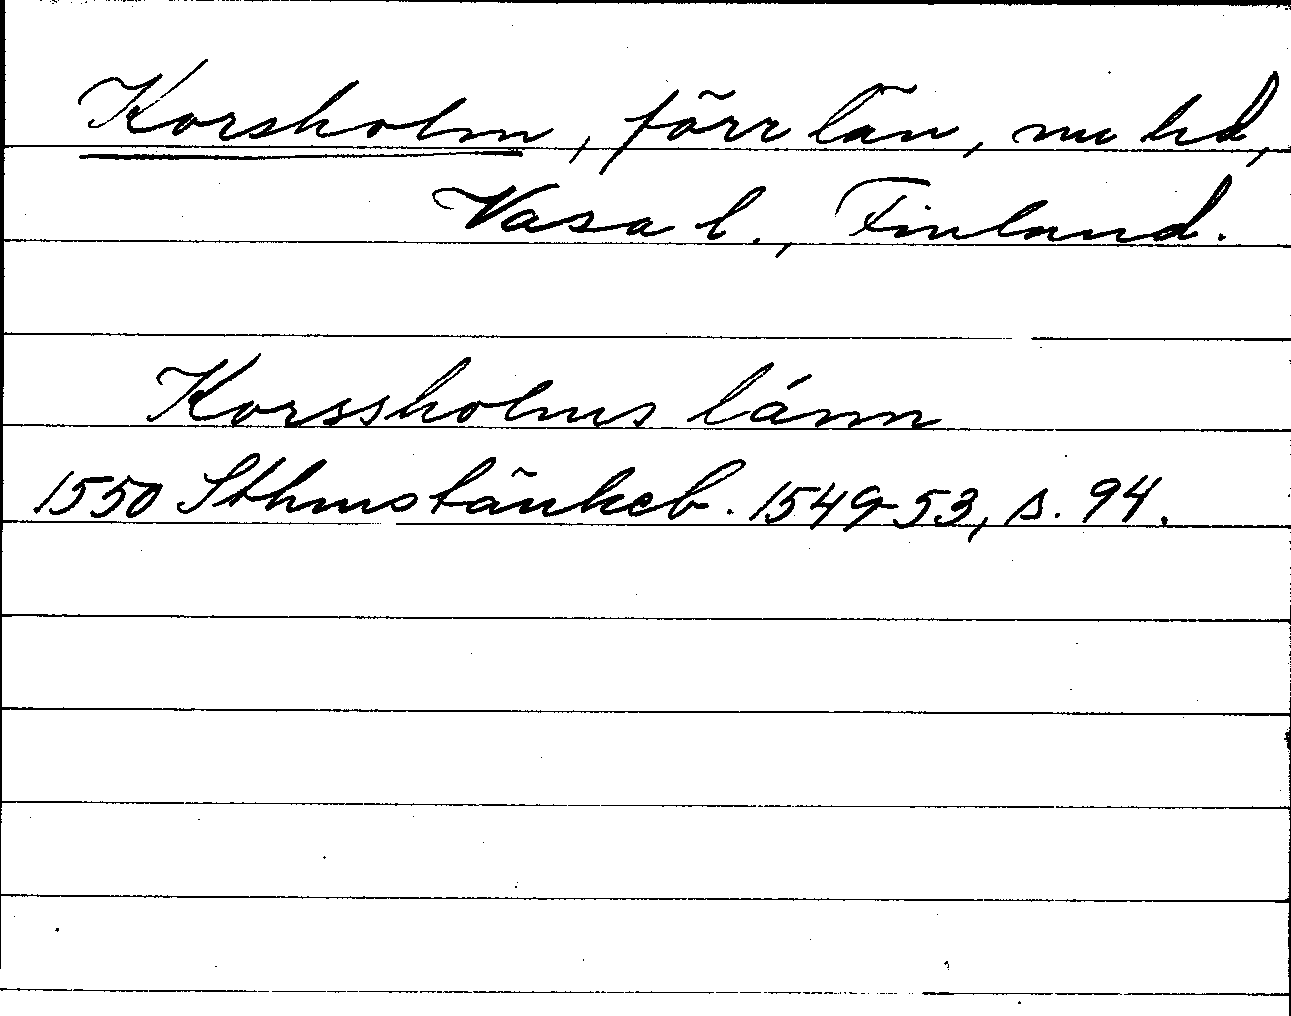 Korsholm, förr län, nu hd,
Vasa l., Finland.
Korssholms länn
1550 Sthms tänkeb. 1549-53, s. 94.